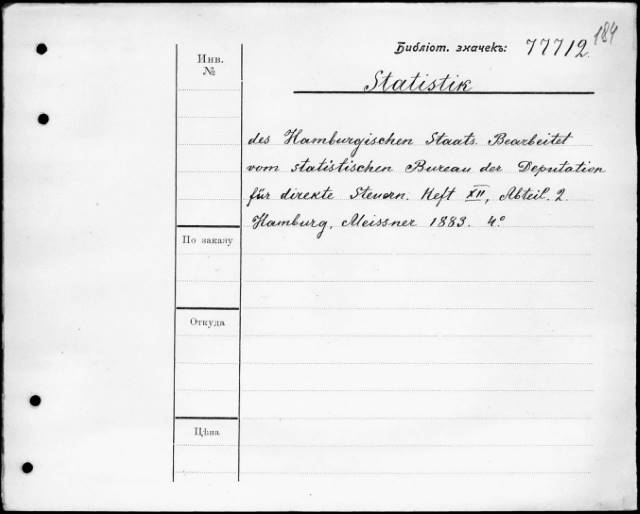 184
Библіот. значекъ: 77712.
Инв. №
Statistik
des Hamburgischen Staats. Bearbeitet
vom statistischen Bureau der Deputation
für direkte Steuern. Heft XII, Abteil. 2.
Hamburg, Meissner 1883. 4.º
По заказу
Откуда
Цѣна